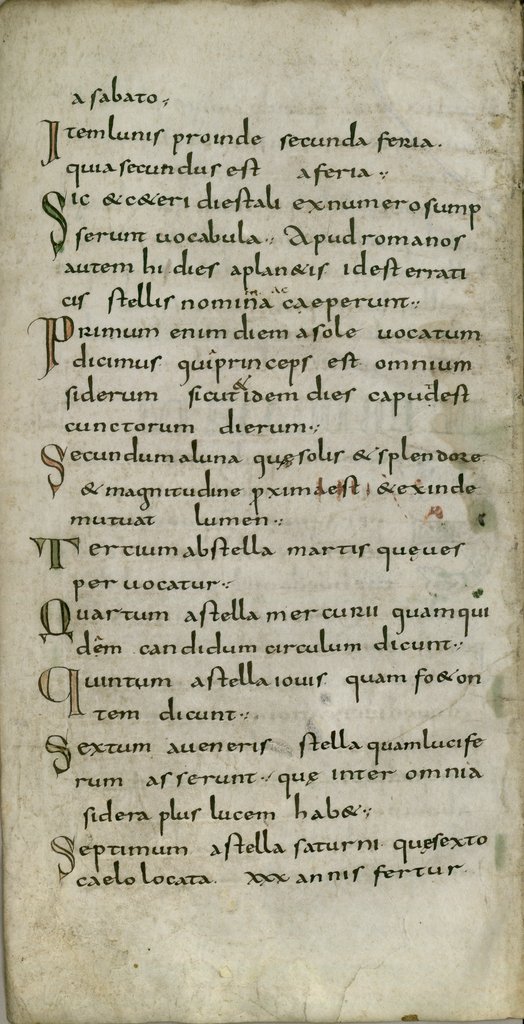 a sabato.,
Item lunis proinde secunda feria.
quia secundus est a feria.,
Sic & c&eri dies tali ex numero sump
serunt uocabula., Apud romanos
autem hi dies a plan&is id est errati
cis stellis nomina caeperunt.,
Primum enim diem a sole uocatum
dicimus qui princeps est omnium
siderum sicut & idem dies capud est
cunctorum dierum.,
Secundum a luna quę solis & splendore
& magnitudine proxima est & exinde
mutuat lumen.,
Tertium ab stella martis quę ues
per uocatur.,
Quartum a stella mercurii quam qui
dem candidum circulum dicunt.,
Quintum a stella iouis quam fo&on
tem dicunt.,
Sextum a ueneris stella quam lucife
rum asserunt., quę inter omnia
sidera plus lucem hab&.,
Septimum a stella saturni quę sexto
caelo locata. xxx annis fertur.